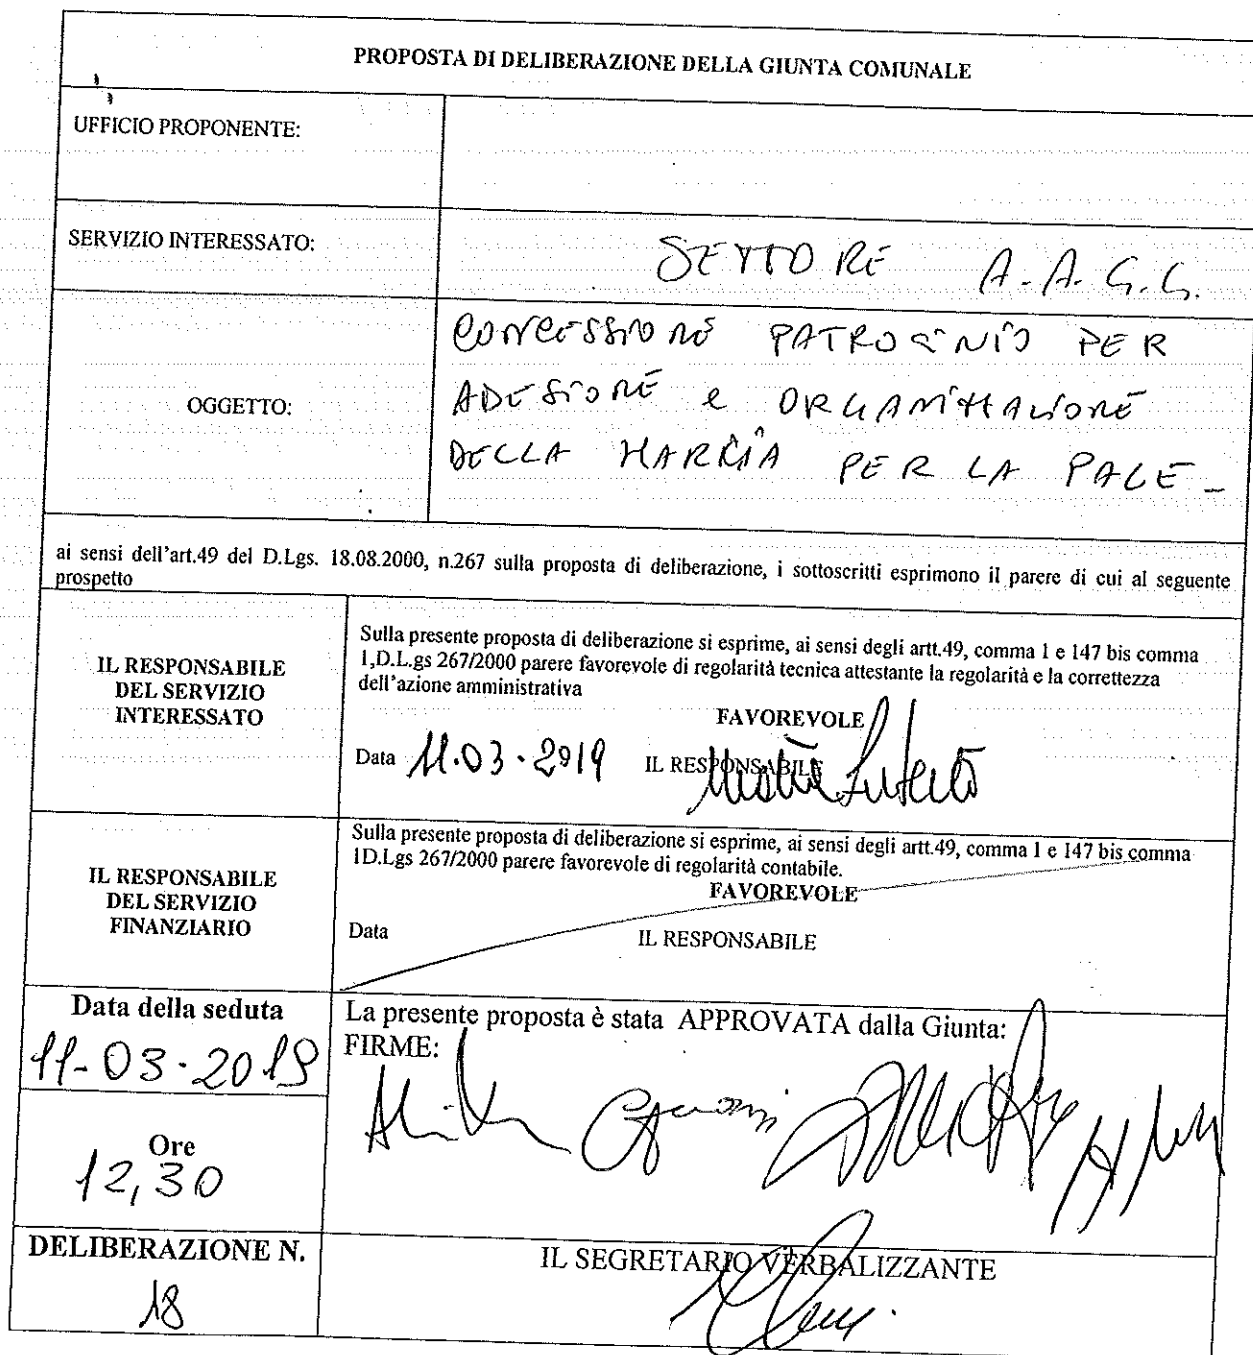 PROPOSTA DI DELIBERAZIONE DELLA GIUNTA COMUNALE
UFFICIO PROPONENTE:
SERVIZIO INTERESSATO:
SETTORE A.A.G.G.
OGGETTO:
CONCESSIONE PATROCINIO PER
ADESIONE e ORGANIZZAZIONE
DELLA MARCIA PER LA PACE-
ai sensi dell'art.49 del D.Lgs. 18.08.2000, n.267 sulla proposta di deliberazione, i sottoscritti esprimono il parere di cui al seguente
prospetto
IL RESPONSABILE
DEL SERVIZIO
INTERESSATO
Sulla presente proposta di deliberazione si esprime, ai sensi degli artt.49, comma 1 e 147 bis comma
1,D.L.gs 267/2000 parere favorevole di regolarità tecnica attestante la regolarità e la correttezza
dell'azione amministrativa
FAVOREVOLE
Data 11.03.2019 IL RESPONSABILE
IL RESPONSABILE
DEL SERVIZIO
FINANZIARIO
Sulla presente proposta di deliberazione si esprime, ai sensi degli artt.49, comma 1 e 147 bis comma
1D.Lgs 267/2000 parere favorevole di regolarità contabile.
FAVOREVOLE
Data IL RESPONSABILE
Data della seduta
11-03.2019
La presente proposta è stata APPROVATA dalla Giunta:
FIRME:
Ore
12,30
DELIBERAZIONE N.
18
IL SEGRETARIO VERBALIZZANTE